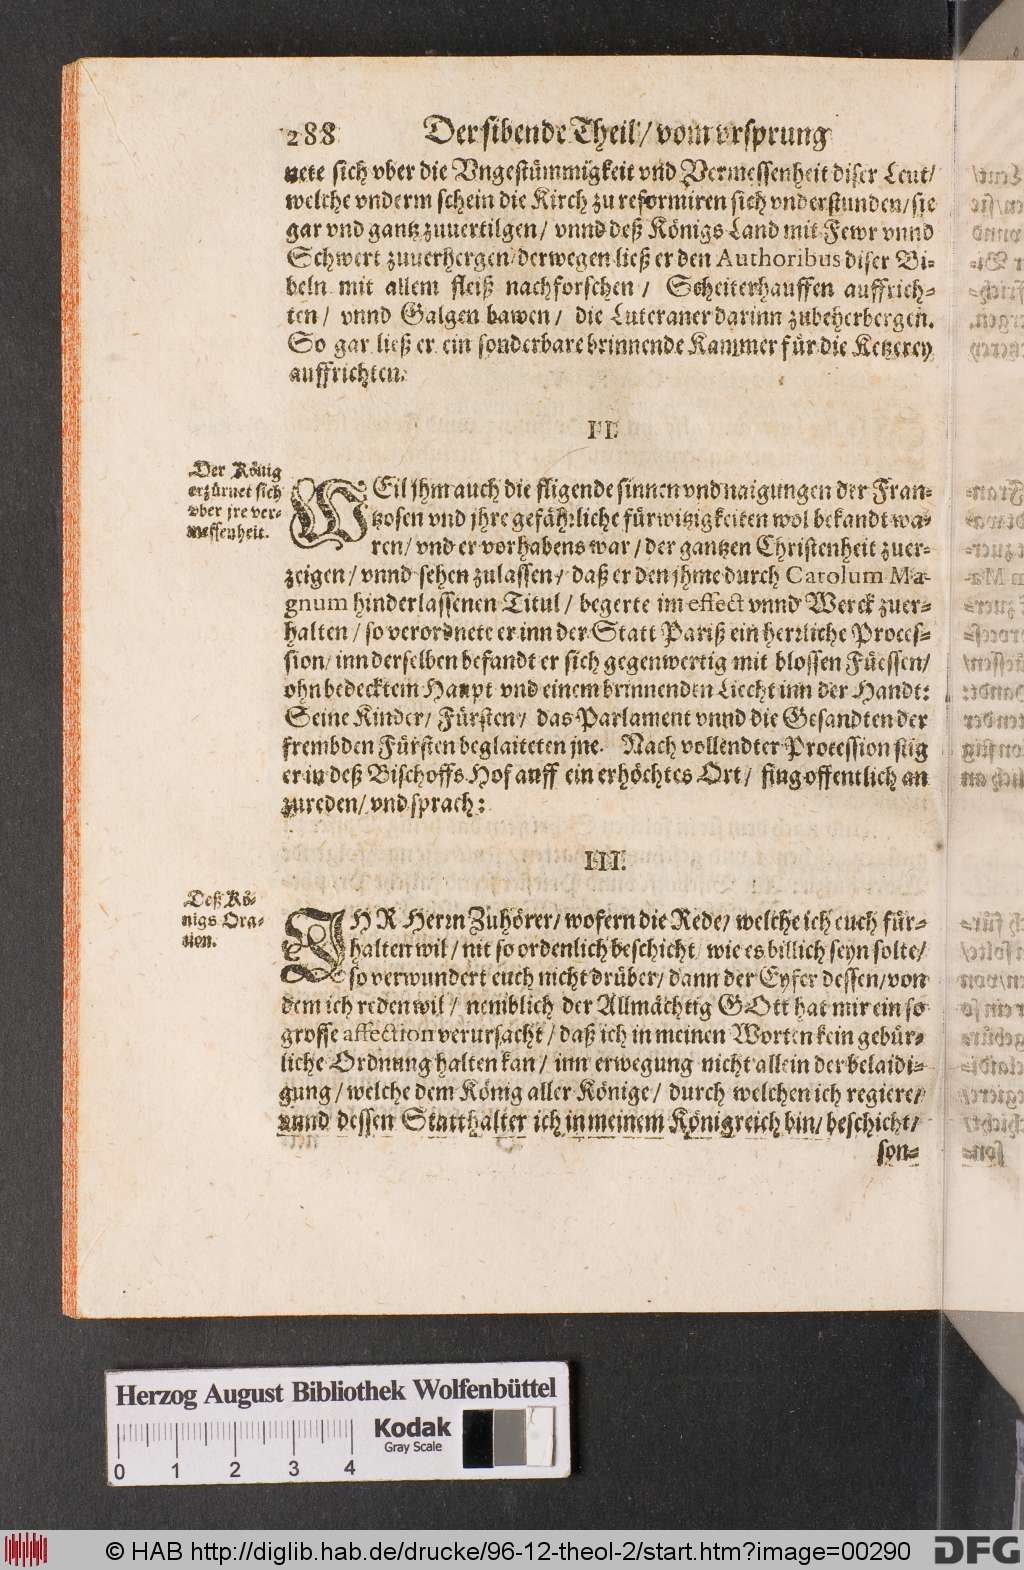 288 Der sibende Theil/ vom vrsprung
nete sich vber die Vngestümmigkeit vnd Vermessenheit diser Leut/
welche vnderm schein die Kirch zu reformiren sich vnderstunden/ sie
gar vnd gantz zuuertilgen/ vnnd deß Königs Land mit Fewr vnnd
Schwert zuuerhergen/ derwegen ließ er den Authoribus diser Bi-
beln mit allem fleiß nachforschen/ Scheiterhauffen auffrich-
ten/ vnnd Galgen bawen/ die Luteraner darinn zubeherbergen.
So gar ließ er ein sonderbare brinnende Kammer für die Ketzerey
auffrichten.
II.
Der König
erzürnet sich
vber jre ver-
messenheit.
WEil jhm auch die fligende sinnen vnd naigungen der Fran-
tzosen vnd jhre gefährliche fürwitzigkeiten wol bekandt wa-
ren/ vnd er vorhabens war/ der gantzen Christenheit zuer-
zeigen/ vnnd sehen zulassen/ daß er den jhme durch Carolum Ma-
gnum hinderlassenen Titul/ begerte im effect vnnd Werck zuer-
halten/ so verordnete er inn der Statt Pariß ein herrliche Proces-
sion/ inn derselben befandt er sich gegenwertig mit blossen Füessen/
ohn bedecktem Haupt vnd einem brinnenden Liecht inn der Handt:
Seine Kinder/ Fürsten/ das Parlament vnnd die Gesandten der
frembden Fürsten beglaiteten jne. Nach vollendter Procession stig
er in deß Bischoffs Hof auff ein erhöchtes Ort/ fing offentlich an
zureden/ vnd sprach:
III.
Deß Kö-
nigs Ora-
tion.
IHR Herrn Zuhörer/ wofern die Rede/ welche ich euch für-
halten wil/ nit so ordenlich beschicht/ wie es billich seyn solte/
so verwundert euch nicht drüber/ dann der Eyfer dessen/ von
dem ich reden wil/ nemblich der Allmächtig GOtt hat mir ein so
grosse affection verursacht/ daß ich in meinen Worten kein gebür-
liche Ordnung halten kan/ inn erwegung nicht allein der belaidi-
gung/ welche dem König aller Könige/ durch welchen ich regiere/
vnnd dessen Statthalter ich in meinem Königreich bin/ beschicht/
son-
Herzog August Bibliothek Wolfenbüttel
Kodak
Gray Scale
0 1 2 3 4
© HAB http://diglib.hab.de/drucke/96-12-theol-2/start.htm?image=00290
DFG